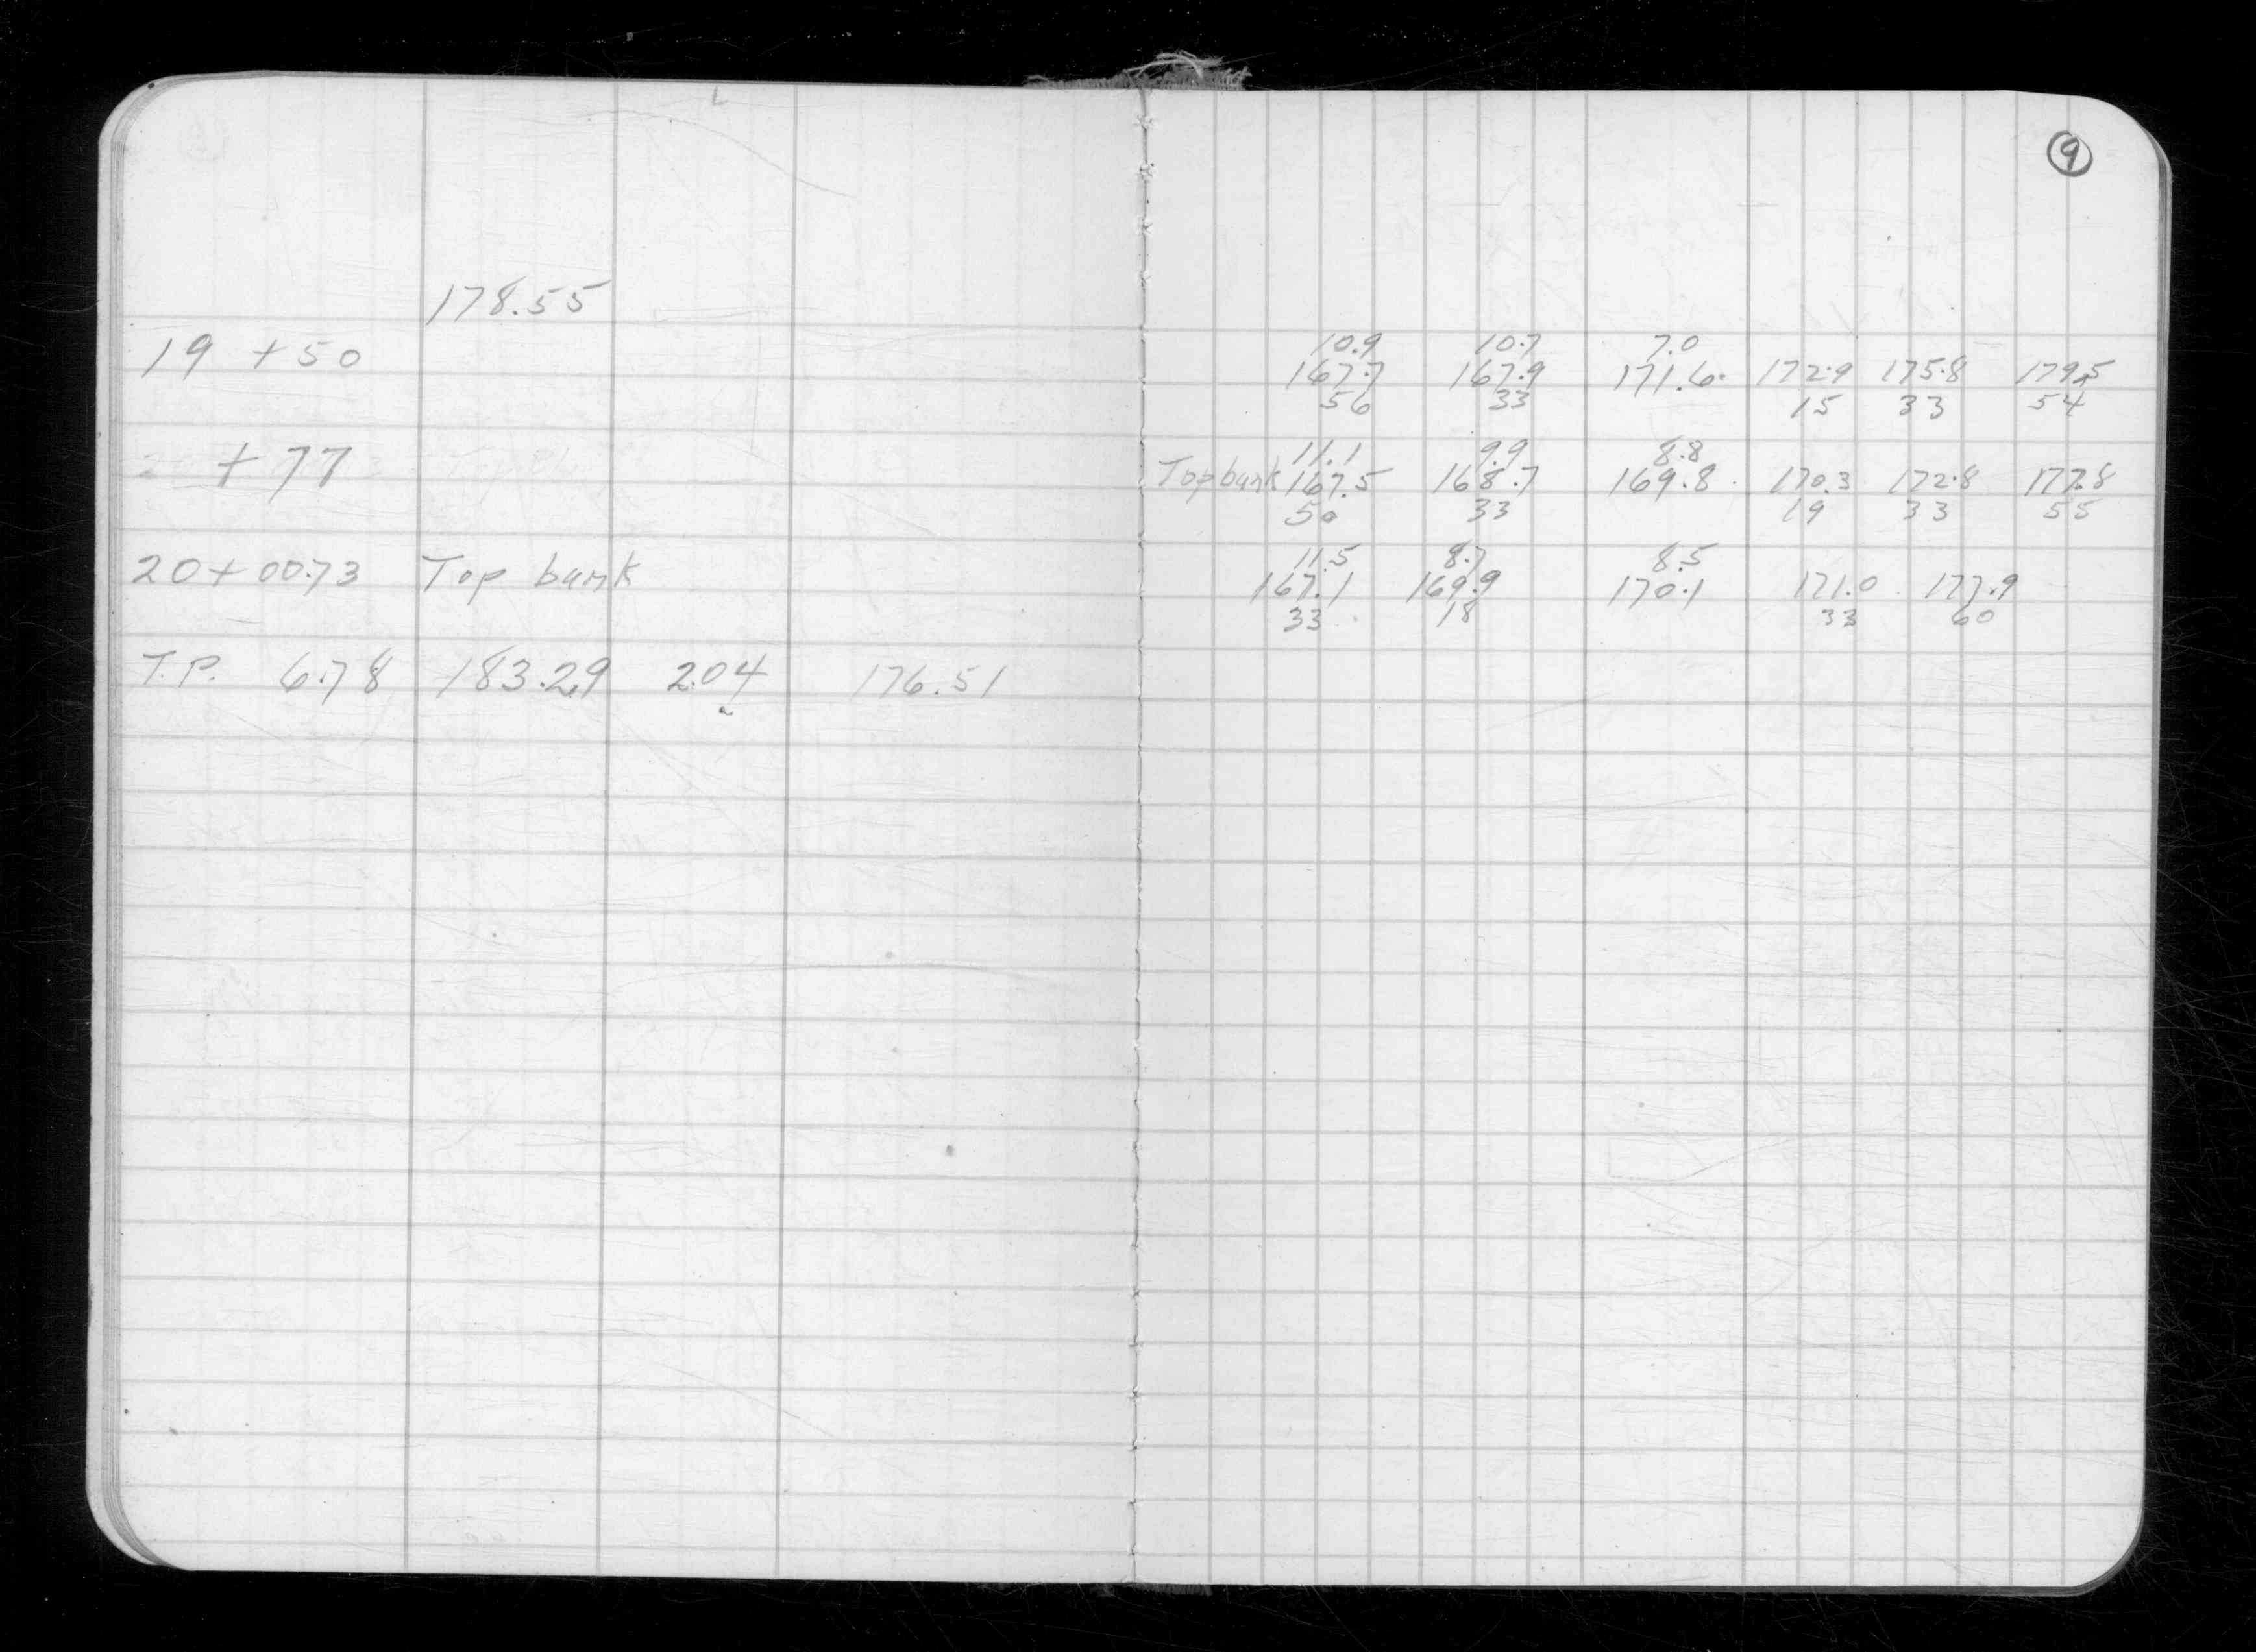 9
178.55
19 +50
+77
20+00.73 Top bank
T.P. 6.78 183.29 2.04 176.51
10.9 10.7 7.0
167.7 167.9 171.6 172.9 175.8 179.5
56 33 15 33 54
11.1 9.9 8.8
Top bank 167.5 168.7 169.8 170.3 172.8 177.8
50 33 19 33 55
11.5 8.7 8.5
167.1 169.9 170.1 171.0 177.9
33 18 33 60